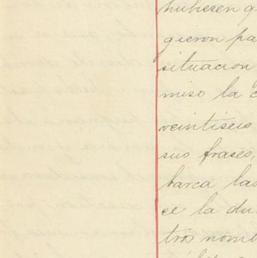 hubiesen q
gieron pa
situacion
miso la c
veintiseis
sus frases,
barca las
ce la du
tros nomb